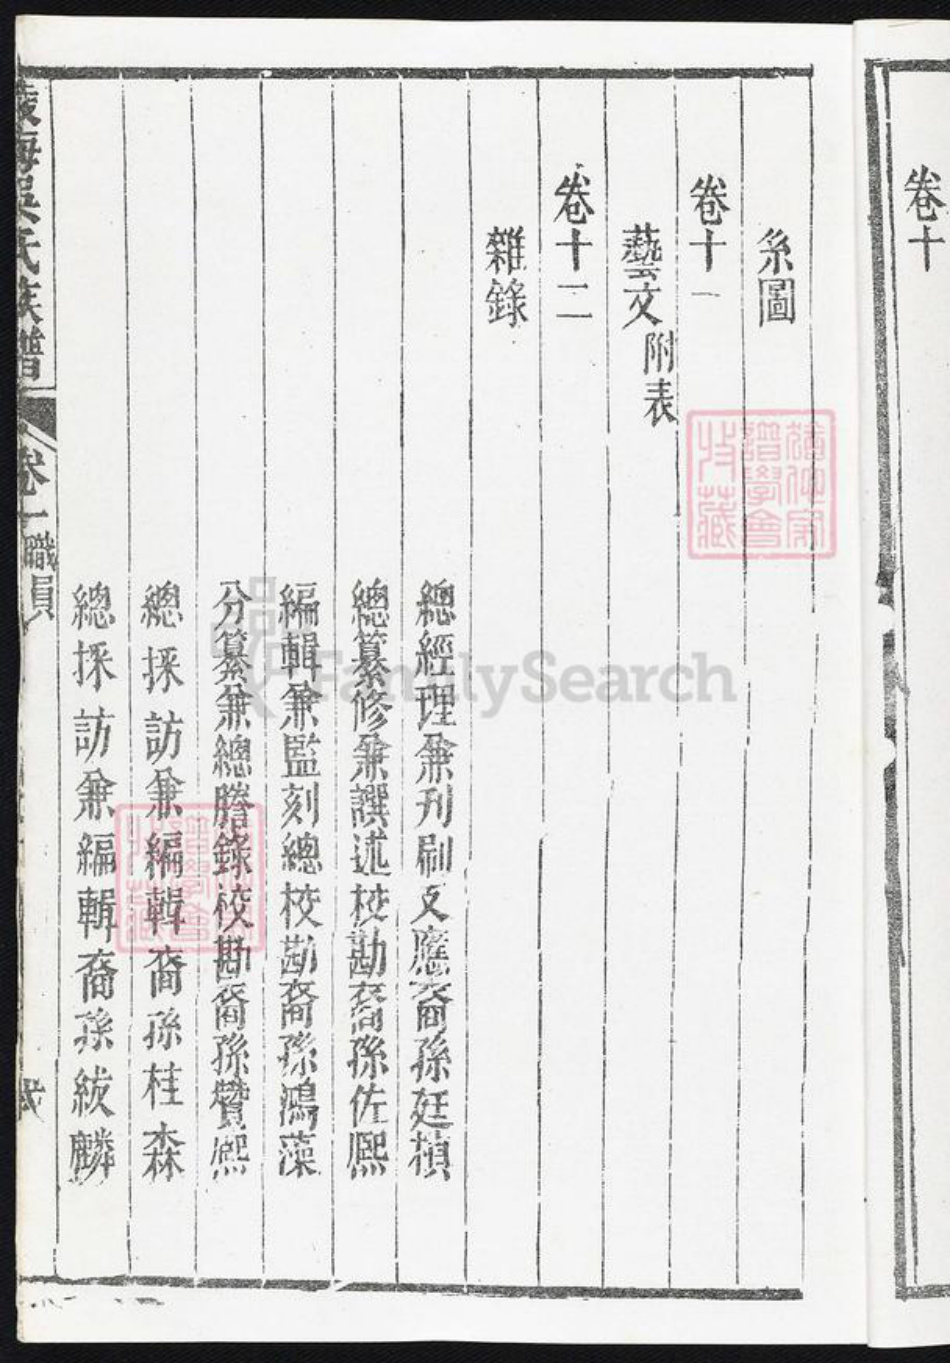 卷十
系圖
卷十一
藝文附表
卷十二
雜錄
總經理兼刊刷支應裔孫廷楨
總纂修兼譔述校勘裔孫佐熙
編輯兼監刻總校勘裔孫鴻藻
分纂兼總謄錄校勘裔孫贊熙
總採訪兼編輯裔孫桂森
總採訪兼編輯裔孫紱麟
海吳氏族譜 卷一 職員 弍
FamilySearch
收藏
譜學會